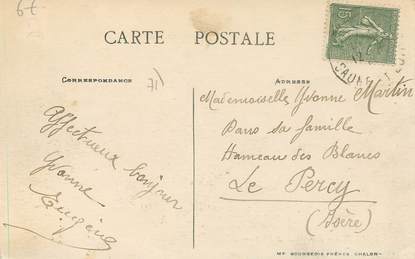 6 €
15
CARTE POSTALE
CORRESPONDANCE
71
ADRESSE
Mademoiselle Yvonne Martin
Dans sa famille
Hameau des Blancs
Le Percy
(Isère)
Affectueux bonjour
Yvonne
Eugène
BOURGEOIS FRÈRES CHALON